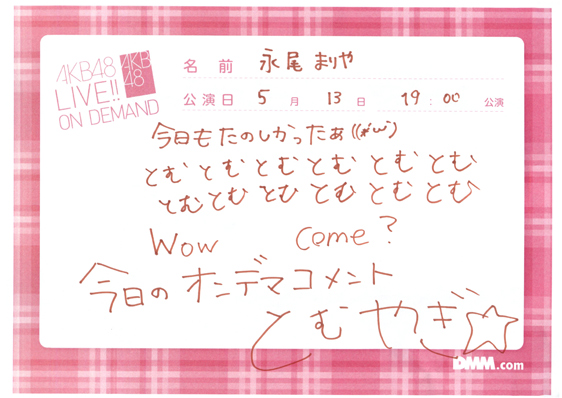 AKB48
LIVE!!
ON DEMAND
AKB
48
名前 永尾 まりや
公演日 5月 13日 19:00 公演
今日もたのしかったぁ((#'ω'))
とむ とむ とむ とむ とむ とむ
とむ とむ とむ とむ とむ とむ
Wow Come?
今日のオンデマコメント
とむ やぎ☆
DMM.com